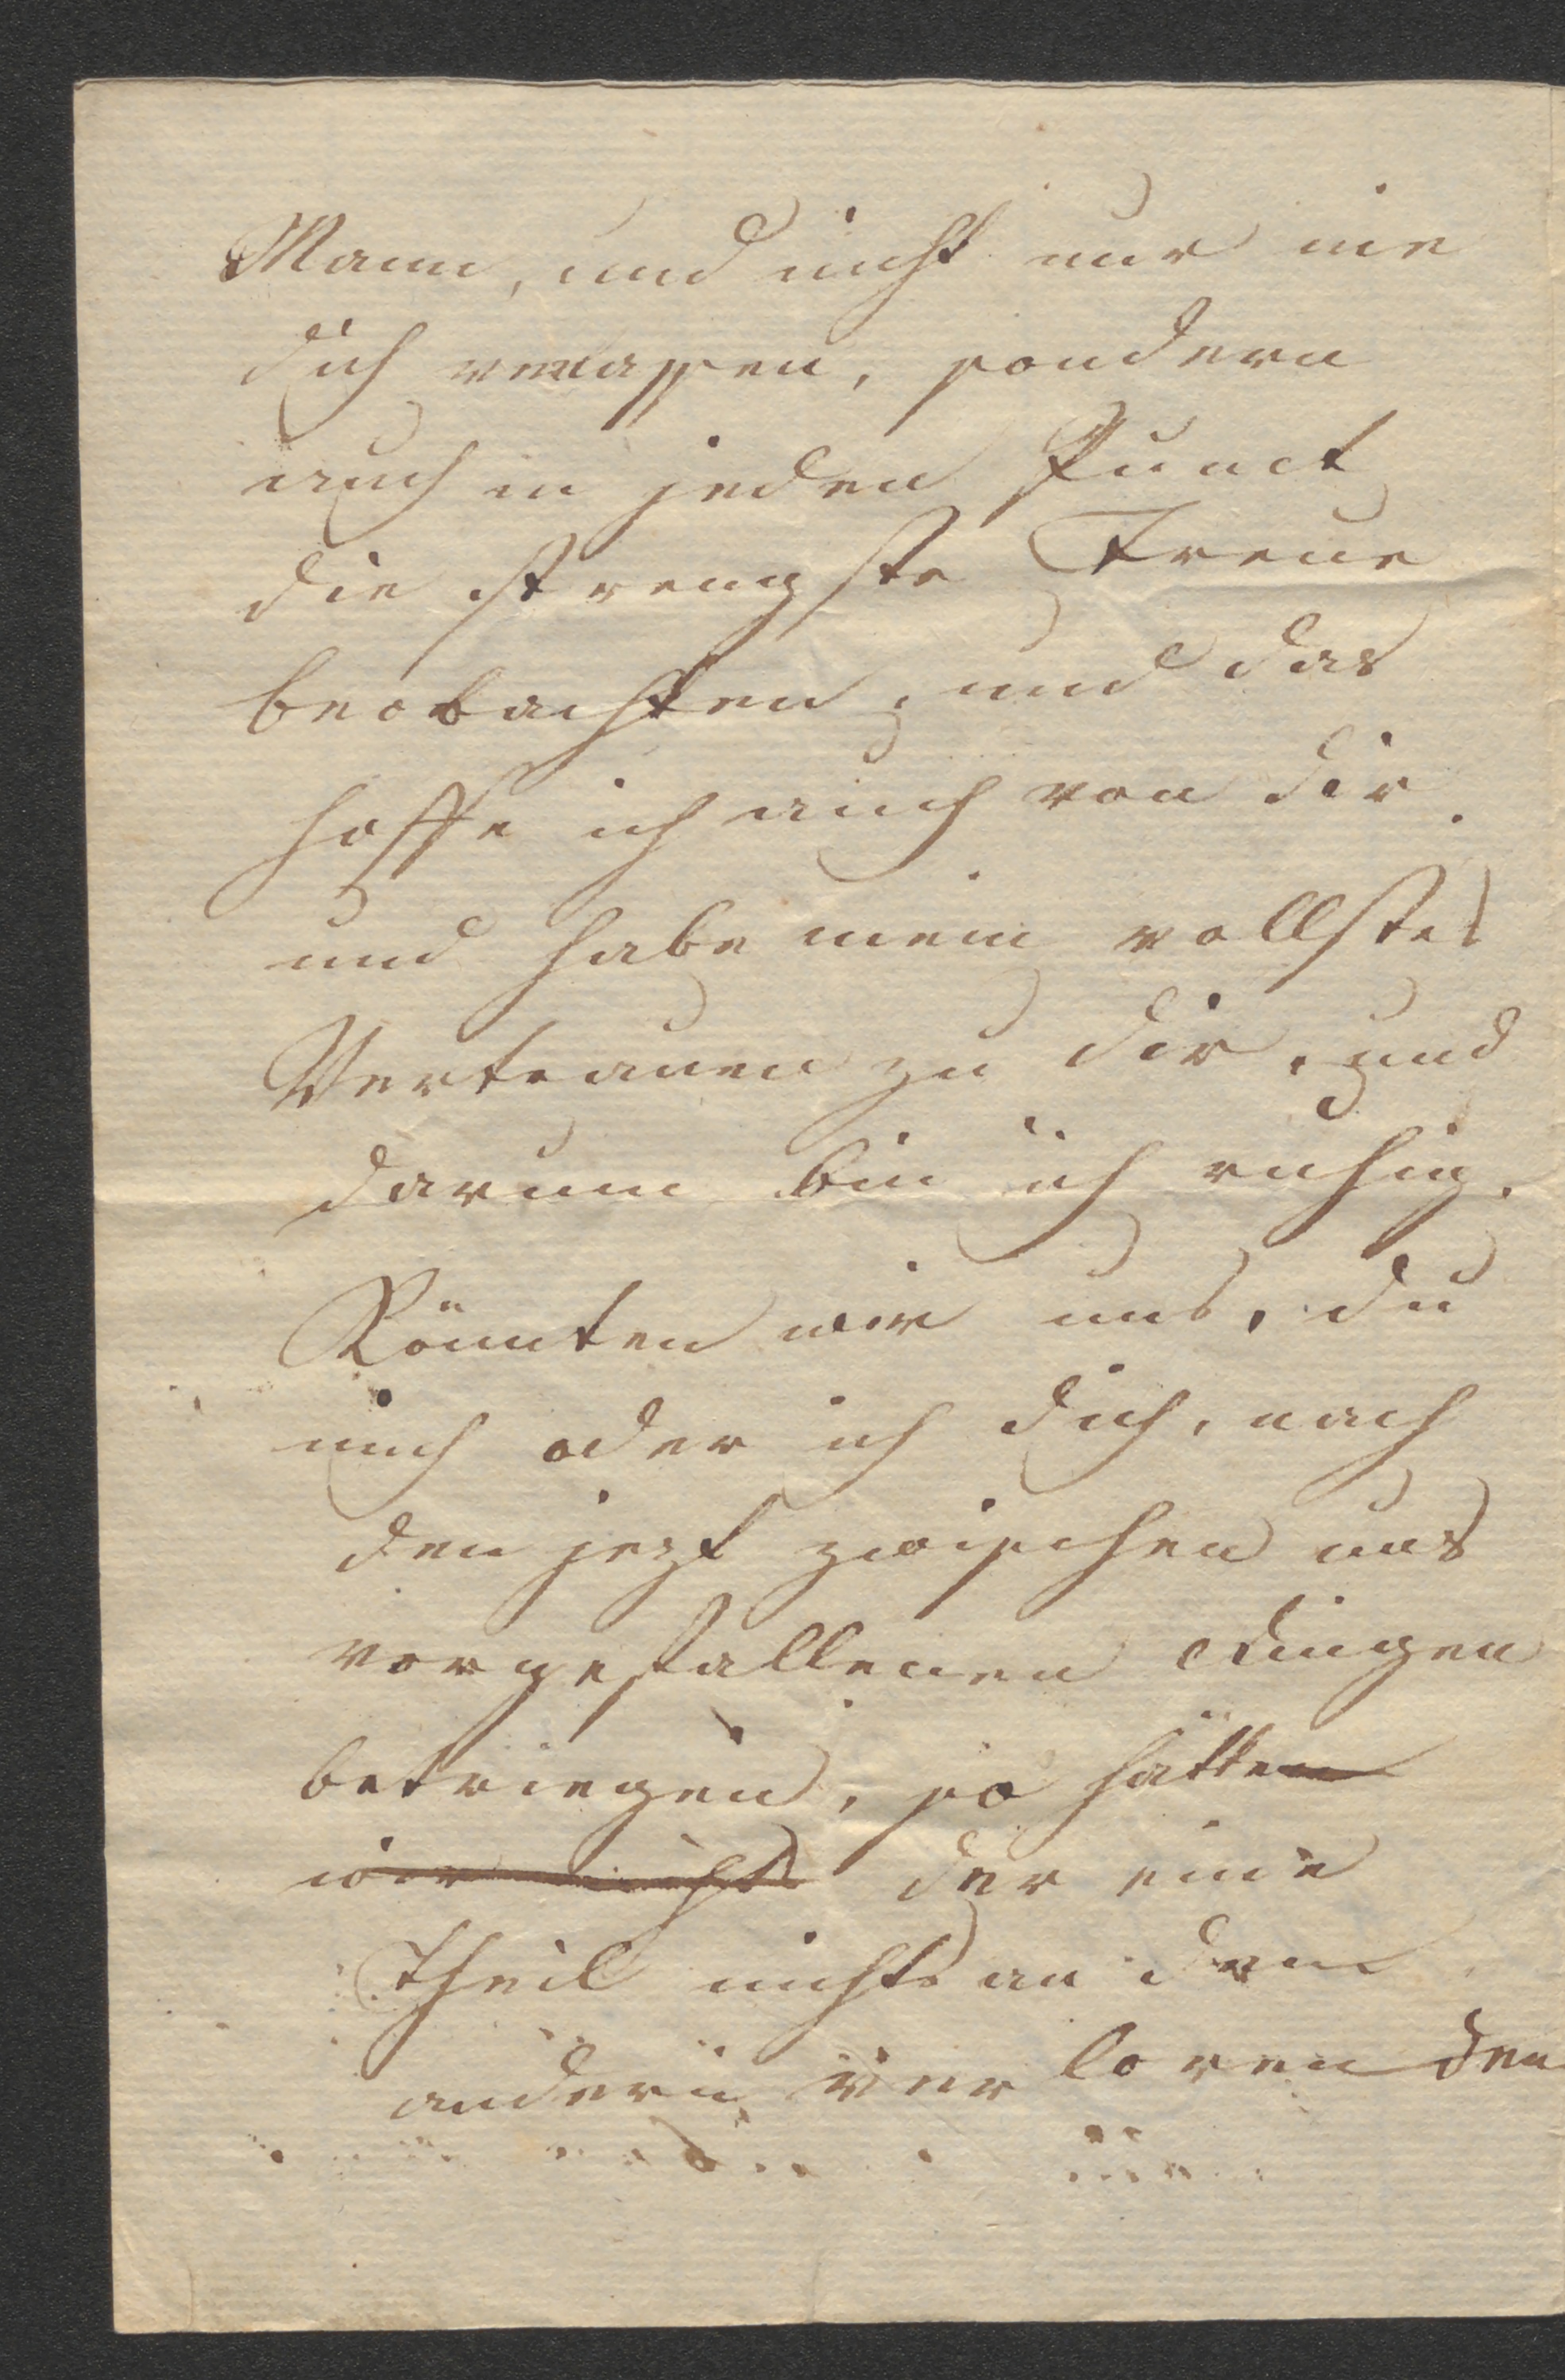 Mann, und nicht nur nie
dich verlassen, sondern
auch in jeden Punct
die strengste Treue
beobachten, und das
hoffe ich auch von dir.
und habe mein vollstes
Vertrauen zu dir, und
darum bin ich ruhig.
Könnten wir uns, du
mich oder ich dich, nach
den jezt zwischen uns
vorgefallenen Dingen
betriegen, so hätten
wir nichts der eine
Theil nichts an dem
andern verloren den